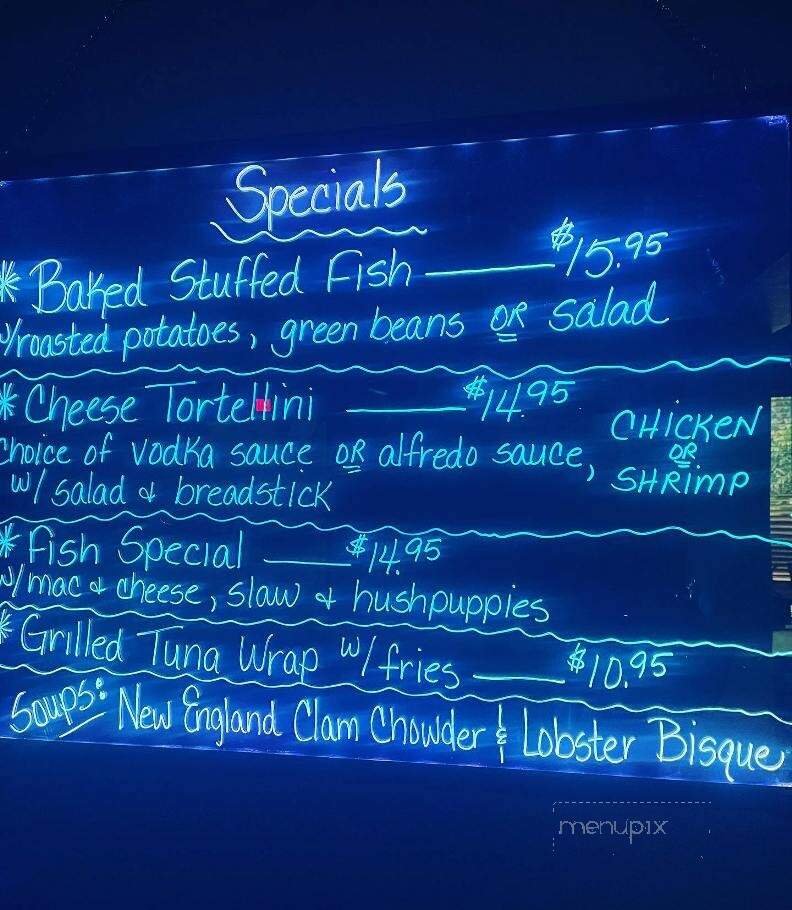 Specials
* Baked Stuffed Fish — $15.95
w/roasted potatoes, green beans OR salad
* Cheese Tortellini — $14.95
choice of vodka sauce OR alfredo sauce, CHICKEN OR SHRIMP
w/ salad & breadstick
* Fish Special — $14.95
w/mac & cheese, slaw & hushpuppies
* Grilled Tuna Wrap w/fries — $10.95
Soups: New England Clam Chowder & Lobster Bisque
menupix